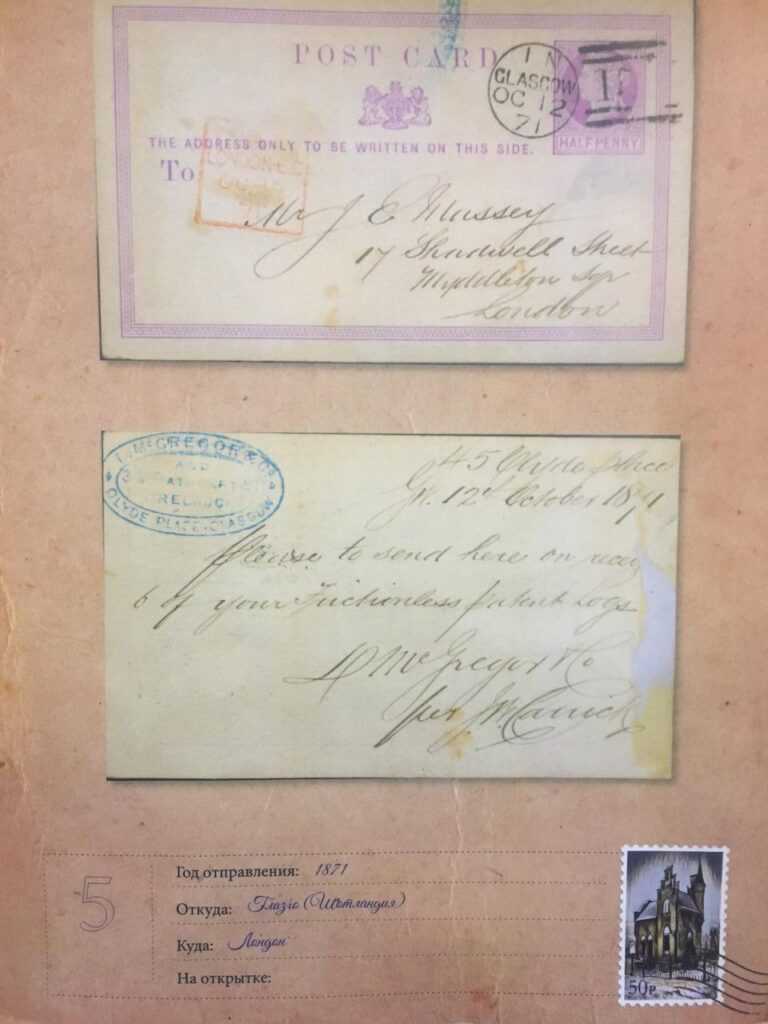 POST CARD
IN
GLASGOW
OC 12
71
HALFPENNY
THE ADDRESS ONLY TO BE WRITTEN ON THIS SIDE.
To
Mr J E Massey
17 Shadwell Street
Myddleton Sqr
London
McGREGOR & Co
CLYDE PLACE, GLASGOW
45 Clyde
12th October 1871
Please to send here on
6 of your Frictionless Patent Logs
D McGregor & Co
per
5
Год отправления: 1871
Откуда: Глазго (Шотландия)
Куда: Лондон
На открытке:
50Р